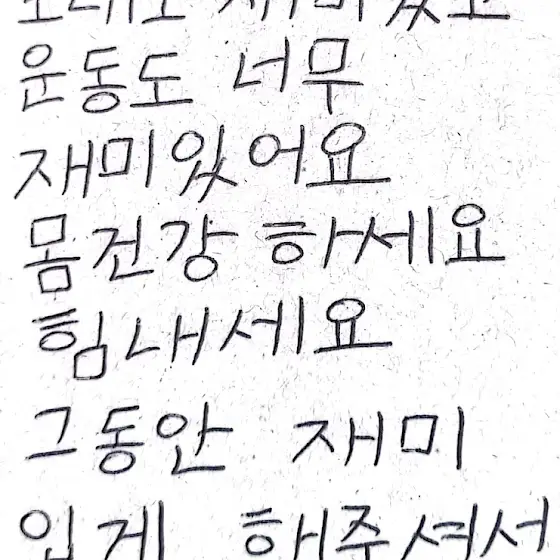 운동도 너무
재미있어요
몸건강 하세요
힘내세요
그동안 재미
있게 해주셔서